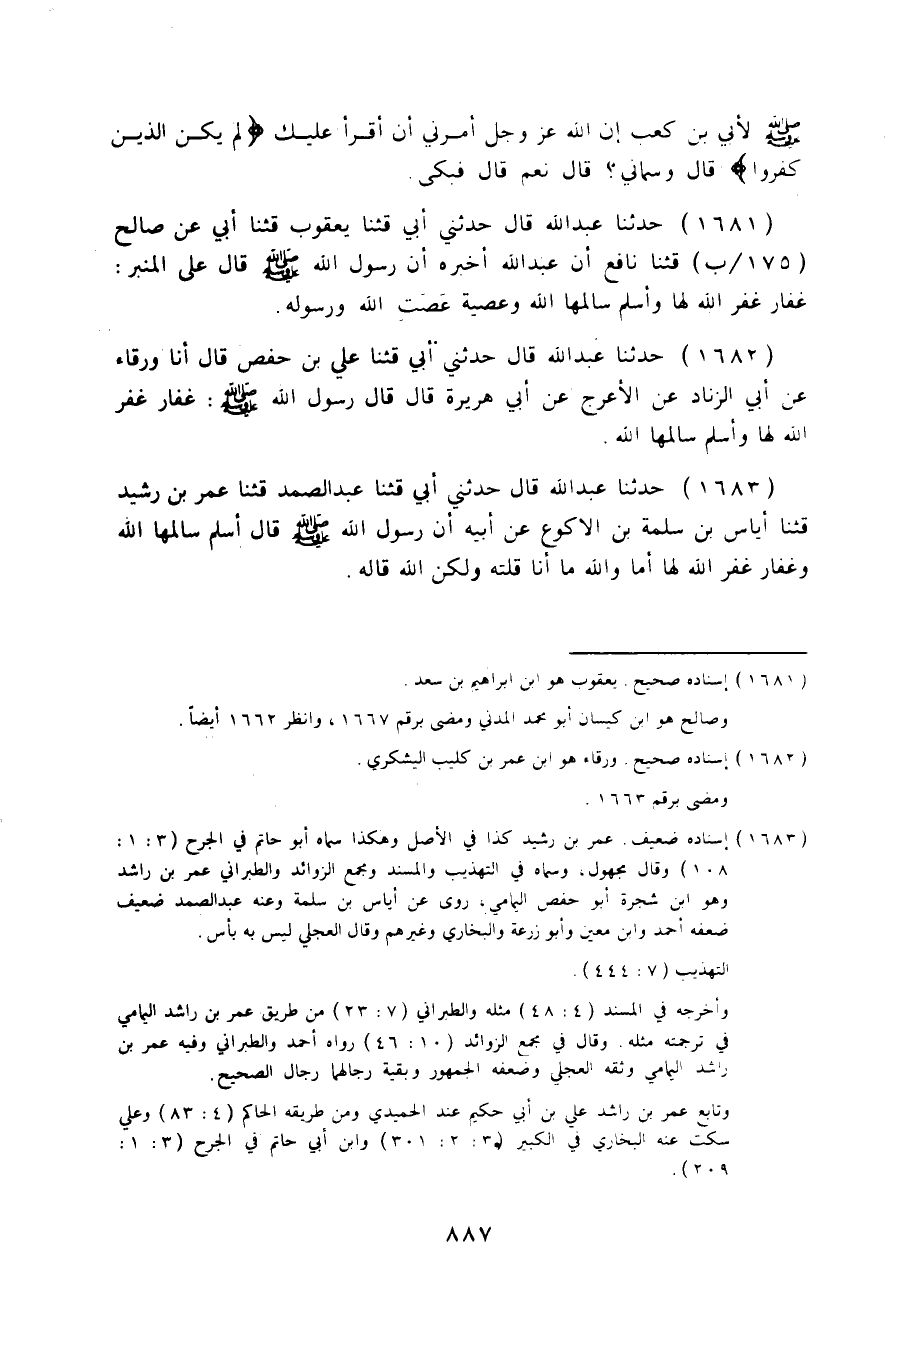 ﷺ لأبي بن كعب إن الله عز وجل أمرني أن أقرأ عليك ﴿لم يكن الذين
كفروا﴾ قال وسماني؟ قال نعم قال فبكى.
(١٦٨١) حدثنا عبدالله قال حدثني أبي قثنا يعقوب قثنا أبي عن صالح
(١٧٥/ب) قثنا نافع أن عبدالله أخبره أن رسول الله ﷺ قال على المنبر:
غفار غفر الله لها وأسلم سالمها الله وعصية عَصَت الله ورسوله.
(١٦٨٢) حدثنا عبدالله قال حدثني أبي قثنا علي بن حفص قال أنا ورقاء
عن أبي الزناد عن الأعرج عن أبي هريرة قال قال رسول الله ﷺ: غفار غفر
الله لها وأسلم سالمها الله.
(١٦٨٣) حدثنا عبدالله قال حدثني أبي قثنا عبدالصمد قثنا عمر بن رشيد
قثنا أياس بن سلمة بن الاكوع عن أبيه أن رسول الله ﷺ قال أسلم سالمها الله
وغفار غفر الله لها أما والله ما أنا قلته ولكن الله قاله.
(١٦٨١) إسناده صحيح. يعقوب هو ابن ابراهيم بن سعد.
وصالح هو ابن كيسان أبو محمد المدني ومضى برقم ١٦٦٧، وانظر ١٦٦٢ أيضاً.
(١٦٨٢) إسناده صحيح. ورقاء هو ابن عمر بن كليب اليشكري.
ومضى برقم ١٦٦٣.
(١٦٨٣) إسناده ضعيف. عمر بن رشيد كذا في الأصل وهكذا سماه أبو حاتم في الجرح (٣: ١:
١٠٨) وقال مجهول، وسماه في التهذيب والمسند ومجمع الزوائد والطبراني عمر بن راشد
وهو ابن شجرة أبو حفص اليمامي، روى عن أياس بن سلمة وعنه عبدالصمد ضعيف
ضعفه أحمد وابن معين وأبو زرعة والبخاري وغيرهم وقال العجلي ليس به بأس.
التهذيب (٧: ٤٤٤).
وأخرجه في المسند (٤: ٤٨) مثله والطبراني (٧: ٢٣) من طريق عمر بن راشد اليمامي
في ترجمته مثله. وقال في مجمع الزوائد (١٠: ٤٦) رواه أحمد والطبراني وفيه عمر بن
راشد اليمامي وثقه العجلي وضعفه الجمهور وبقية رجالها رجال الصحيح.
وتابع عمر بن راشد علي بن أبي حكيم عند الحميدي ومن طريقه الحاكم (٤: ٨٣) وعلي
سكت عنه البخاري في الكبير (٣: ٢: ٣٠١) وابن أبي حاتم في الجرح (٣: ١:
٢٠٩).
٨٨٧